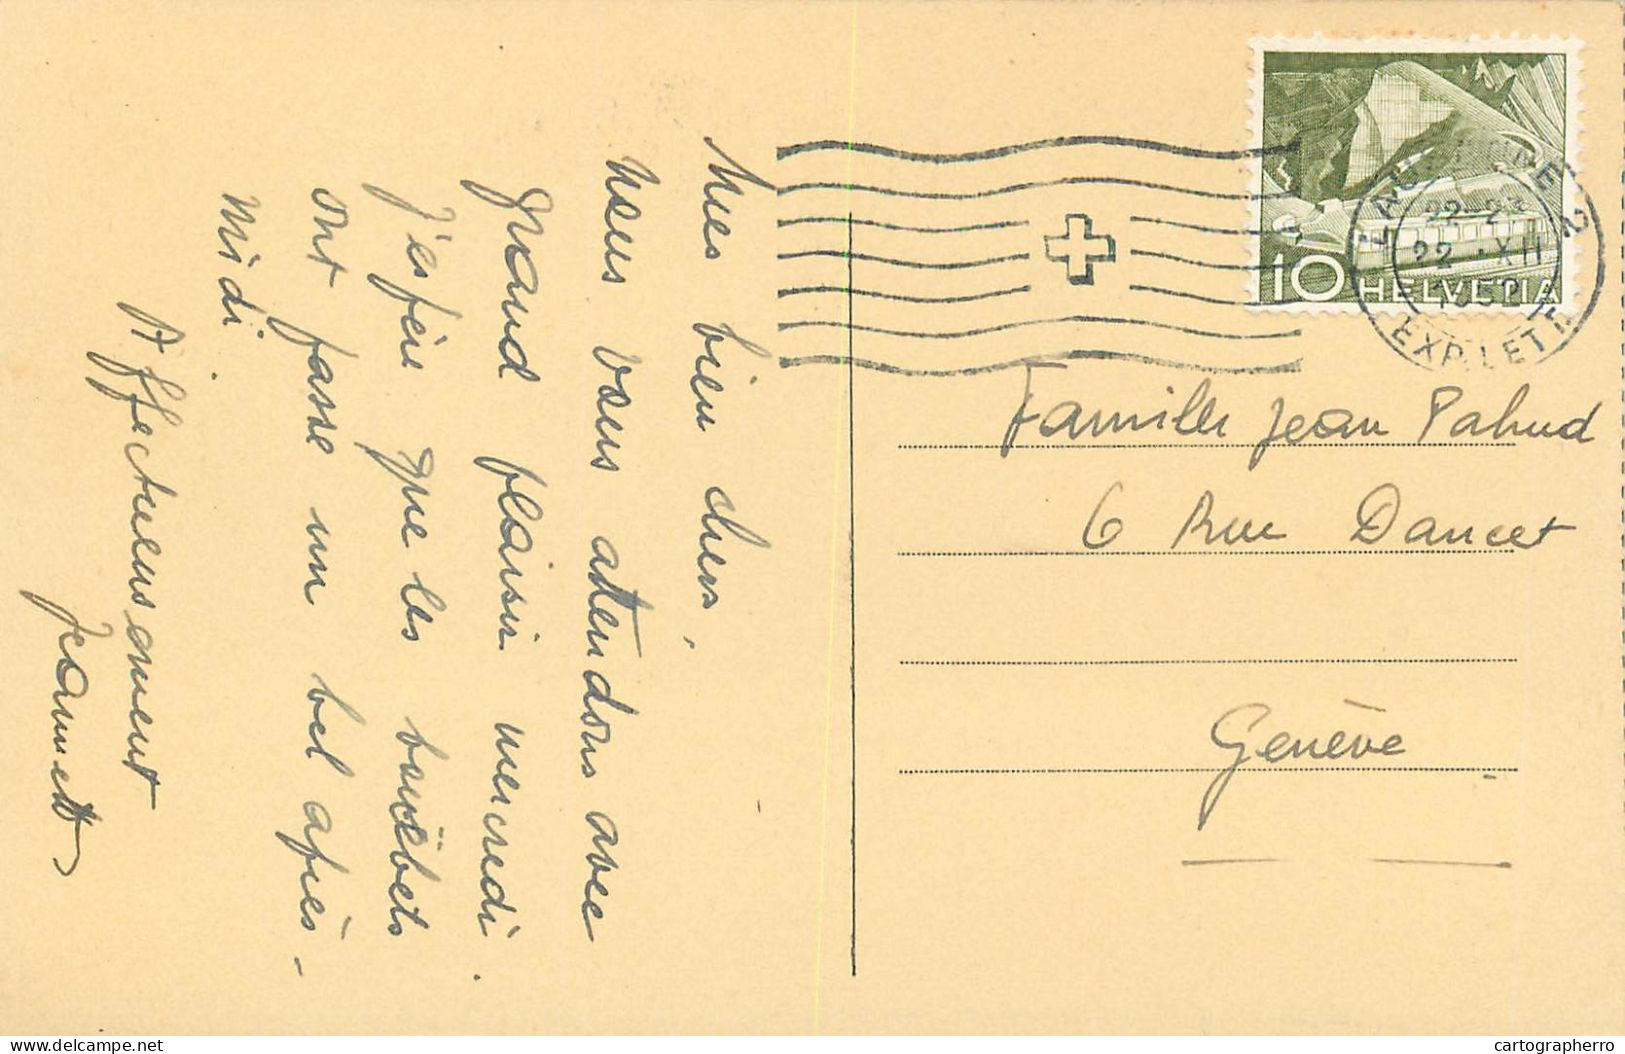 Mes bien chers,
Nous vous attendons avec
grand plaisir mercredi.
J'espère que les
ont fasse un bel après-
midi.
Affectueusement
Jeannette
10 HELVETIA
LAUSANNE 2
22-23
22.XII
1952
EXP. LETTR.
Famille Jean Pahud
6 Rue Dancet
Genève
delcampe.net
cartographerro